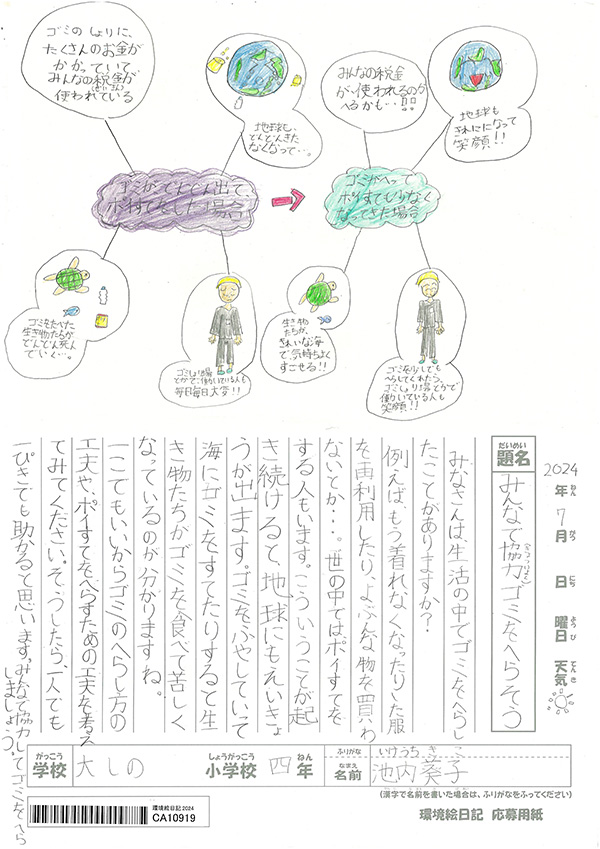 ゴミのしょりに、
たくさんのお金が
かかっていて、
みんなの税金が
(ぜいきん)
使われている
地球も、
どんどんきた
なくなって…。
みんなの税金
が、使われるのが
へるかも…!!
地球も
きれいになって
笑顔!!
ゴミがどんどん出て、
ポイすてをした場合
ゴミがへって
ポイすても少なく
なってきた場合
ゴミをたべた
生き物たちが
どんどん死ん
でいく…。
ゴミしょり場
とかで、働いている人も
毎日毎日大変!!
生き物
たちが、
きれいな海
で、気持ちよく
すごせる!!
ゴミを少しでも
へらしてくれたら、
ゴミしょり場とかで
働いている人も
笑顔!!
2024年 7月 日 曜日 天気
ねん がつ にち ようび てんき
だいめい
題名
みんなで協力ゴミをへらそう
みなさんは、生活の中でゴミをへらし
たことがありますか?
例えば、もう着れなくなったりした服
を再利用したり、よぶんな物を買わ
ないとか…。世の中ではポイすてを
する人もいます。こういうことが起
き続けると、地球にもえいきょ
うが出ます。ゴミをふやしていって
海にゴミをすてたりすると生
き物たちがゴミを食べて苦しく
なっているのが分かりますね。
一こでもいいからゴミのへらし方の
工夫や、ポイすてをへらすための工夫を考え
てみてください。そうしたら、一人でも
一ぴきでも助かると思います。みんなで協力してゴミをへら
しましょう。
がっこう
学校
大しの
しょうがっこう
小学校
四
ねん
年
ふりがな
いけうち きこ
なまえ
名前
池内葵子
(漢字で名前を書いた場合は、ふりがなをふってください)
環境絵日記2024
CA10919
環境絵日記 応募用紙